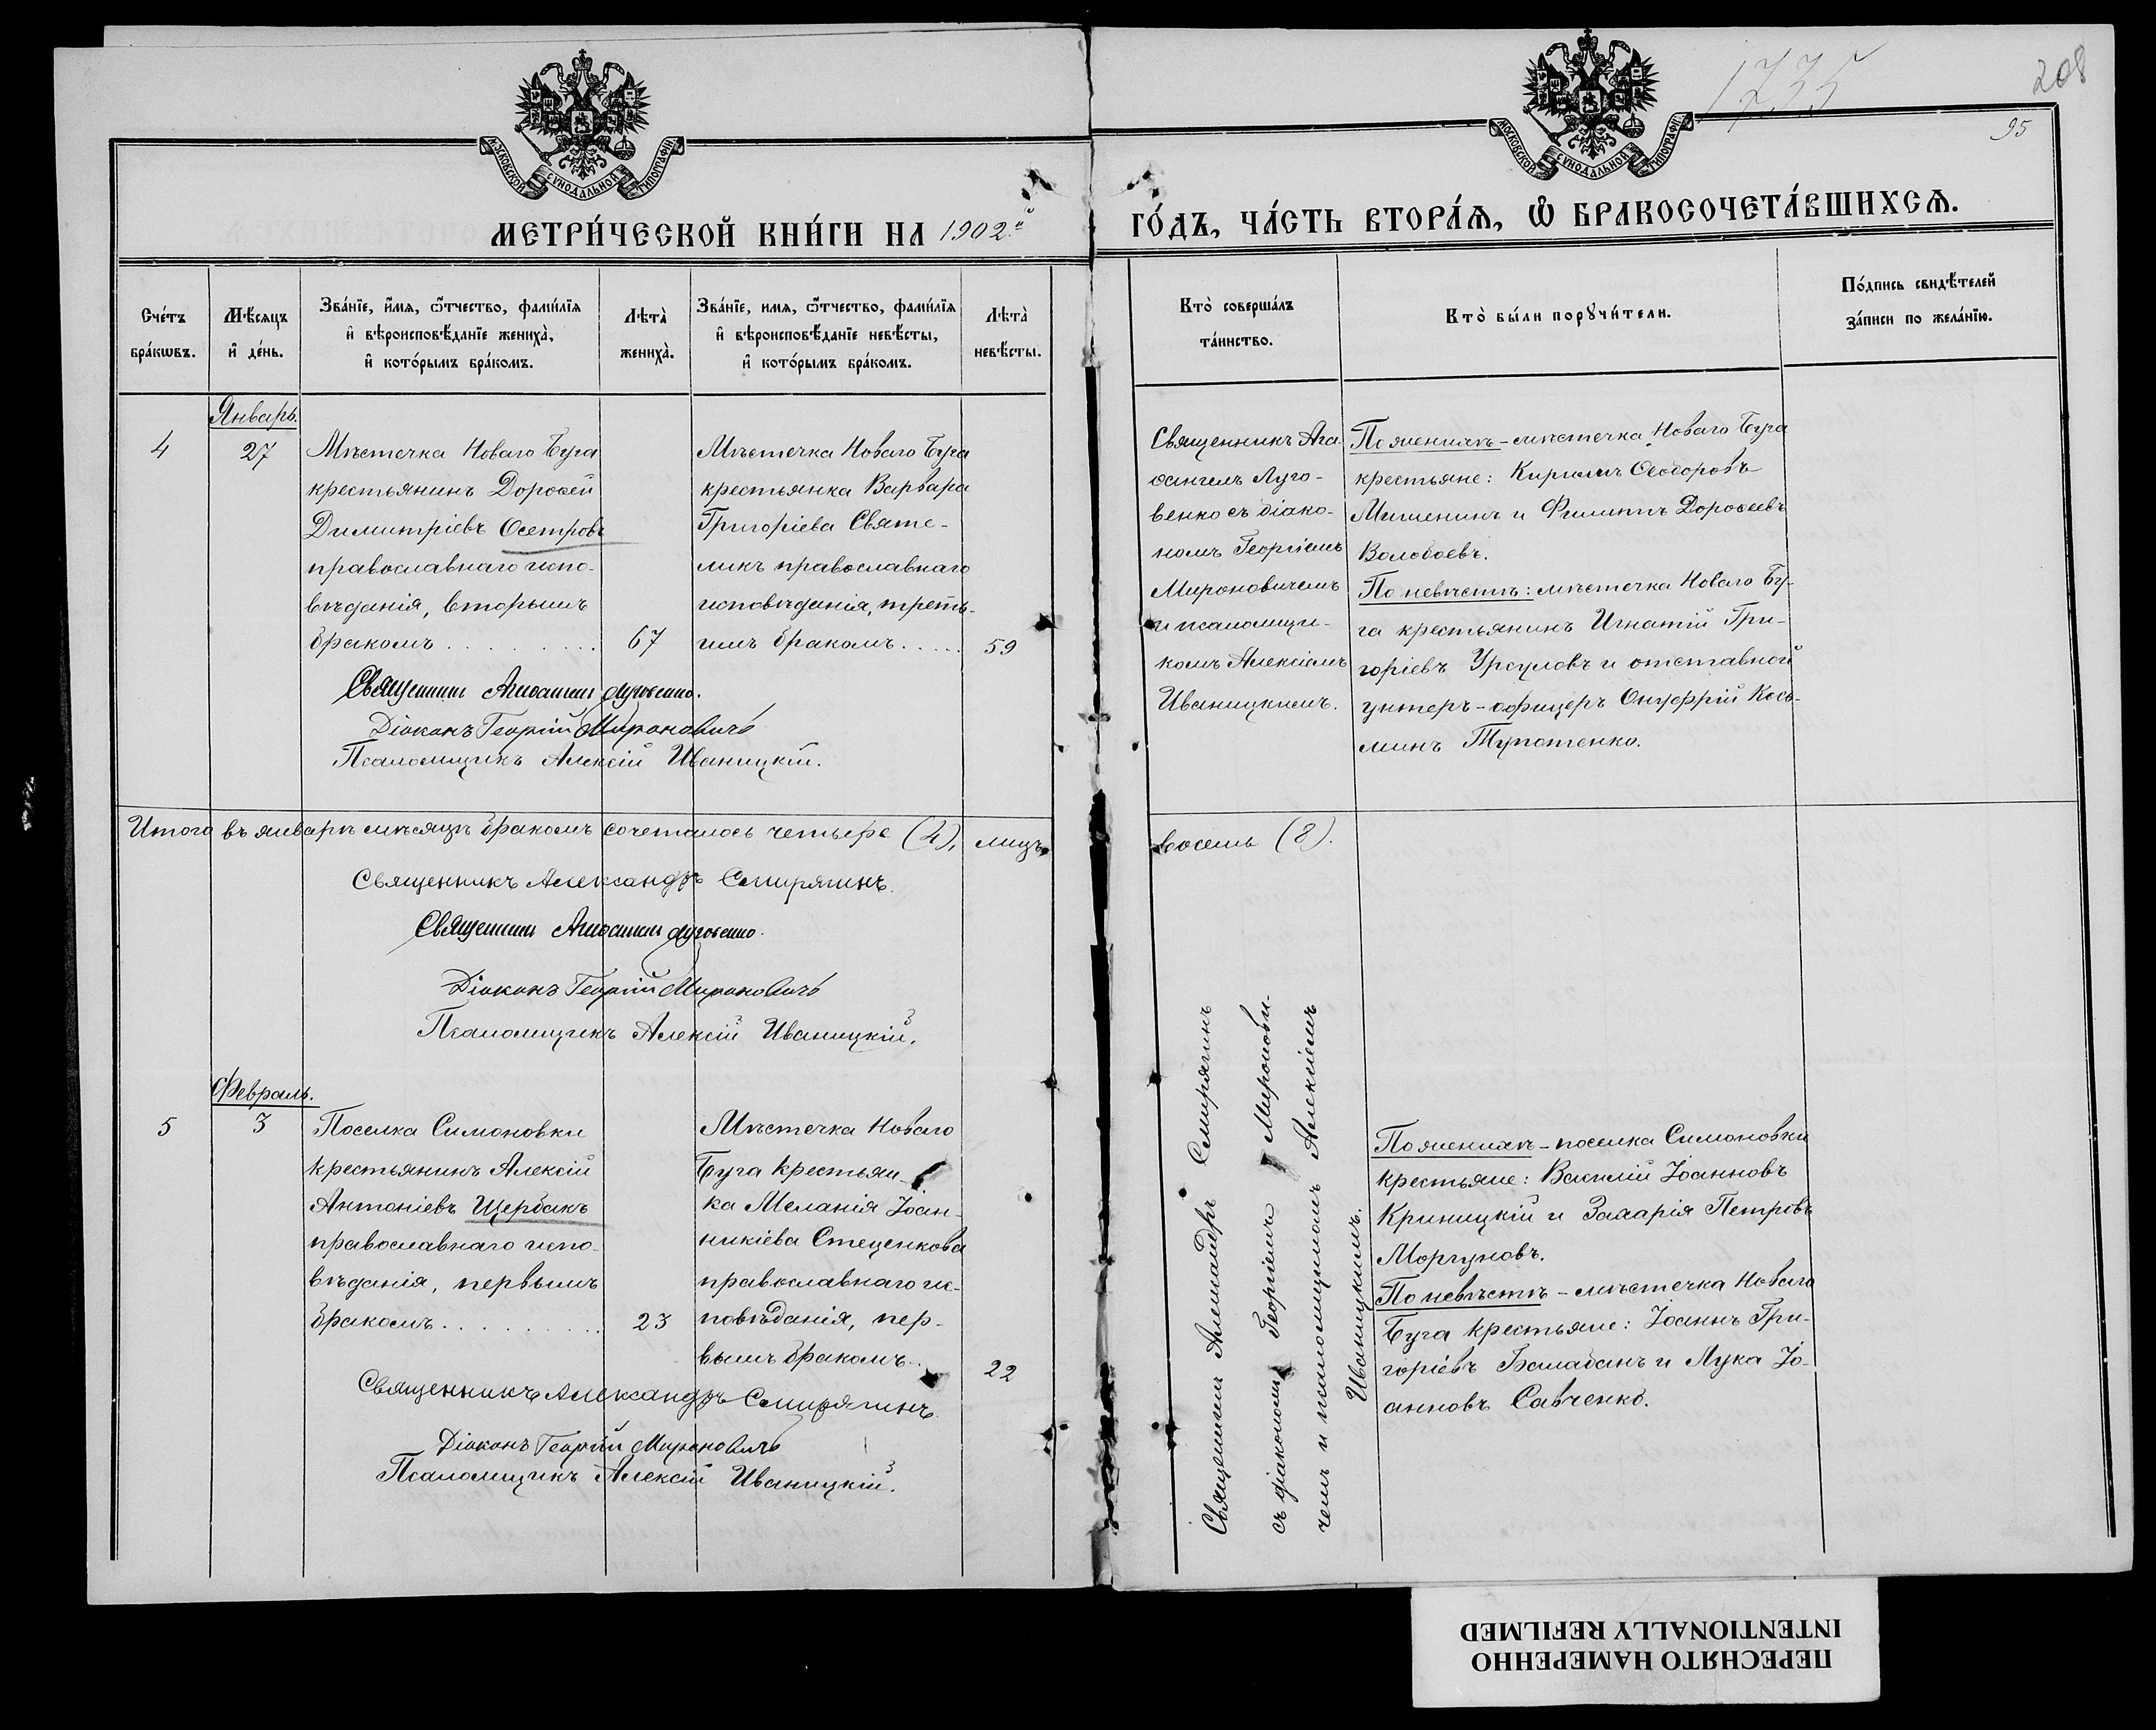 1735
208
95
МОСКОВСКОЙ СУНОДАЛЬНОЙ ТИПОГРАФІИ
МОСКОВСКОЙ СУНОДАЛЬНОЙ ТИПОГРАФІИ
МЕТРИ́ЧЕСКОЙ КНИ́ГИ НА 1902й
ГО́ДЪ, ЧА́СТЬ ВТОРА́Ѧ, Ѽ БРАКОСОЧЕТА́ВШИХСѦ.
Сче́тъ бра́кѡвъ.
Мѣ́сяцъ и де́нь.
Зва́нїе, и́мѧ, ѻ҆́тчество, фами́лїѧ и вѣроисповѣ́данїе жениха̀, и кото́рымъ бра́комъ.
Лѣта̀ жениха̀.
Зва́нїе, имѧ, ѻ҆́тчество, фами́лїѧ и вѣроисповѣ́данїе невѣ́сты, и кото́рымъ бра́комъ.
Лѣта̀ невѣ́сты.
Кто̀ соверша́лъ та́инство.
Кто̀ бы́ли порꙋчи́тели.
По́дпись свидѣ́телей за́писи по жела́нїю.
Январь.
4
27
Мѣстечка Новаго Буга
крестьянинъ Дороѳей
Димитріевъ Осетровъ
православнаго испо-
вѣданія, вторымъ
бракомъ . . . . . . . . .
67
Мѣстечка Новаго Буга
крестьянка Варвара
Григоріева Святе-
ликъ православнаго
исповѣданія, треть-
имъ бракомъ. . . . .
59
Священникъ Ага-
ѳангелъ Луго-
венко съ діако-
номъ Георгіемъ
Мироновичемъ
и псаломщи-
комъ Алексіемъ
Иваницкимъ.
По женихѣ – мѣстечка Новаго Буга
крестьяне: Кириллъ Ѳеодоровъ
Мишенинъ и Филиппъ Дороѳеевъ
Волобоевъ.
По невѣстѣ: мѣстечка Новаго Бу-
га крестьянинъ Игнатій Гри-
горіевъ Урсуловъ и отставной
унтеръ-офицеръ Онуфрій Кось-
минъ Тупотенко.
Священникъ Агаѳангелъ Луговенко.
Діаконъ Георгій Мироновичъ
Псаломщикъ Алексій Иваницкій.
Итого въ январѣ мѣсяцѣ бракомъ сочеталось четыре (4), лицъ восемь (8).
Священникъ Александръ Смирягинъ.
Священникъ Агаѳангелъ Луговенко.
Діаконъ Георгій Мироновичъ
Псаломщикъ Алексій Иваницкій.
Февраль.
5
3
Поселка Симоновки
крестьянинъ Алексій
Антоніевъ Щербакъ
православнаго испо-
вѣданія, первымъ
бракомъ. . . . . . . . . .
23
Мѣстечка Новаго
Буга крестьян-
ка Меланія Іоан-
никіева Стеценкова
православнаго ис-
повѣданія, пер-
вымъ бракомъ. .
22
Священникъ Александръ Смирягинъ
съ діакономъ Георгіемъ Миронови-
чемъ и псаломщикомъ Алексіемъ
Иваницкимъ.
По женихѣ – поселка Симоновки
крестьяне: Василій Іоанновъ
Криницкій и Захарія Петровъ
Моргуновъ.
По невѣстѣ – мѣстечка Новаго
Буга крестьяне: Іоаннъ Гри-
горіевъ Балабанъ и Лука Іо-
анновъ Савченко.
Священникъ Александръ Смирягинъ.
Діаконъ Георгій Мироновичъ
Псаломщикъ Алексій Иваницкій.
ПЕРЕСНЯТО НАМЕРЕННО
INTENTIONALLY REFILMED